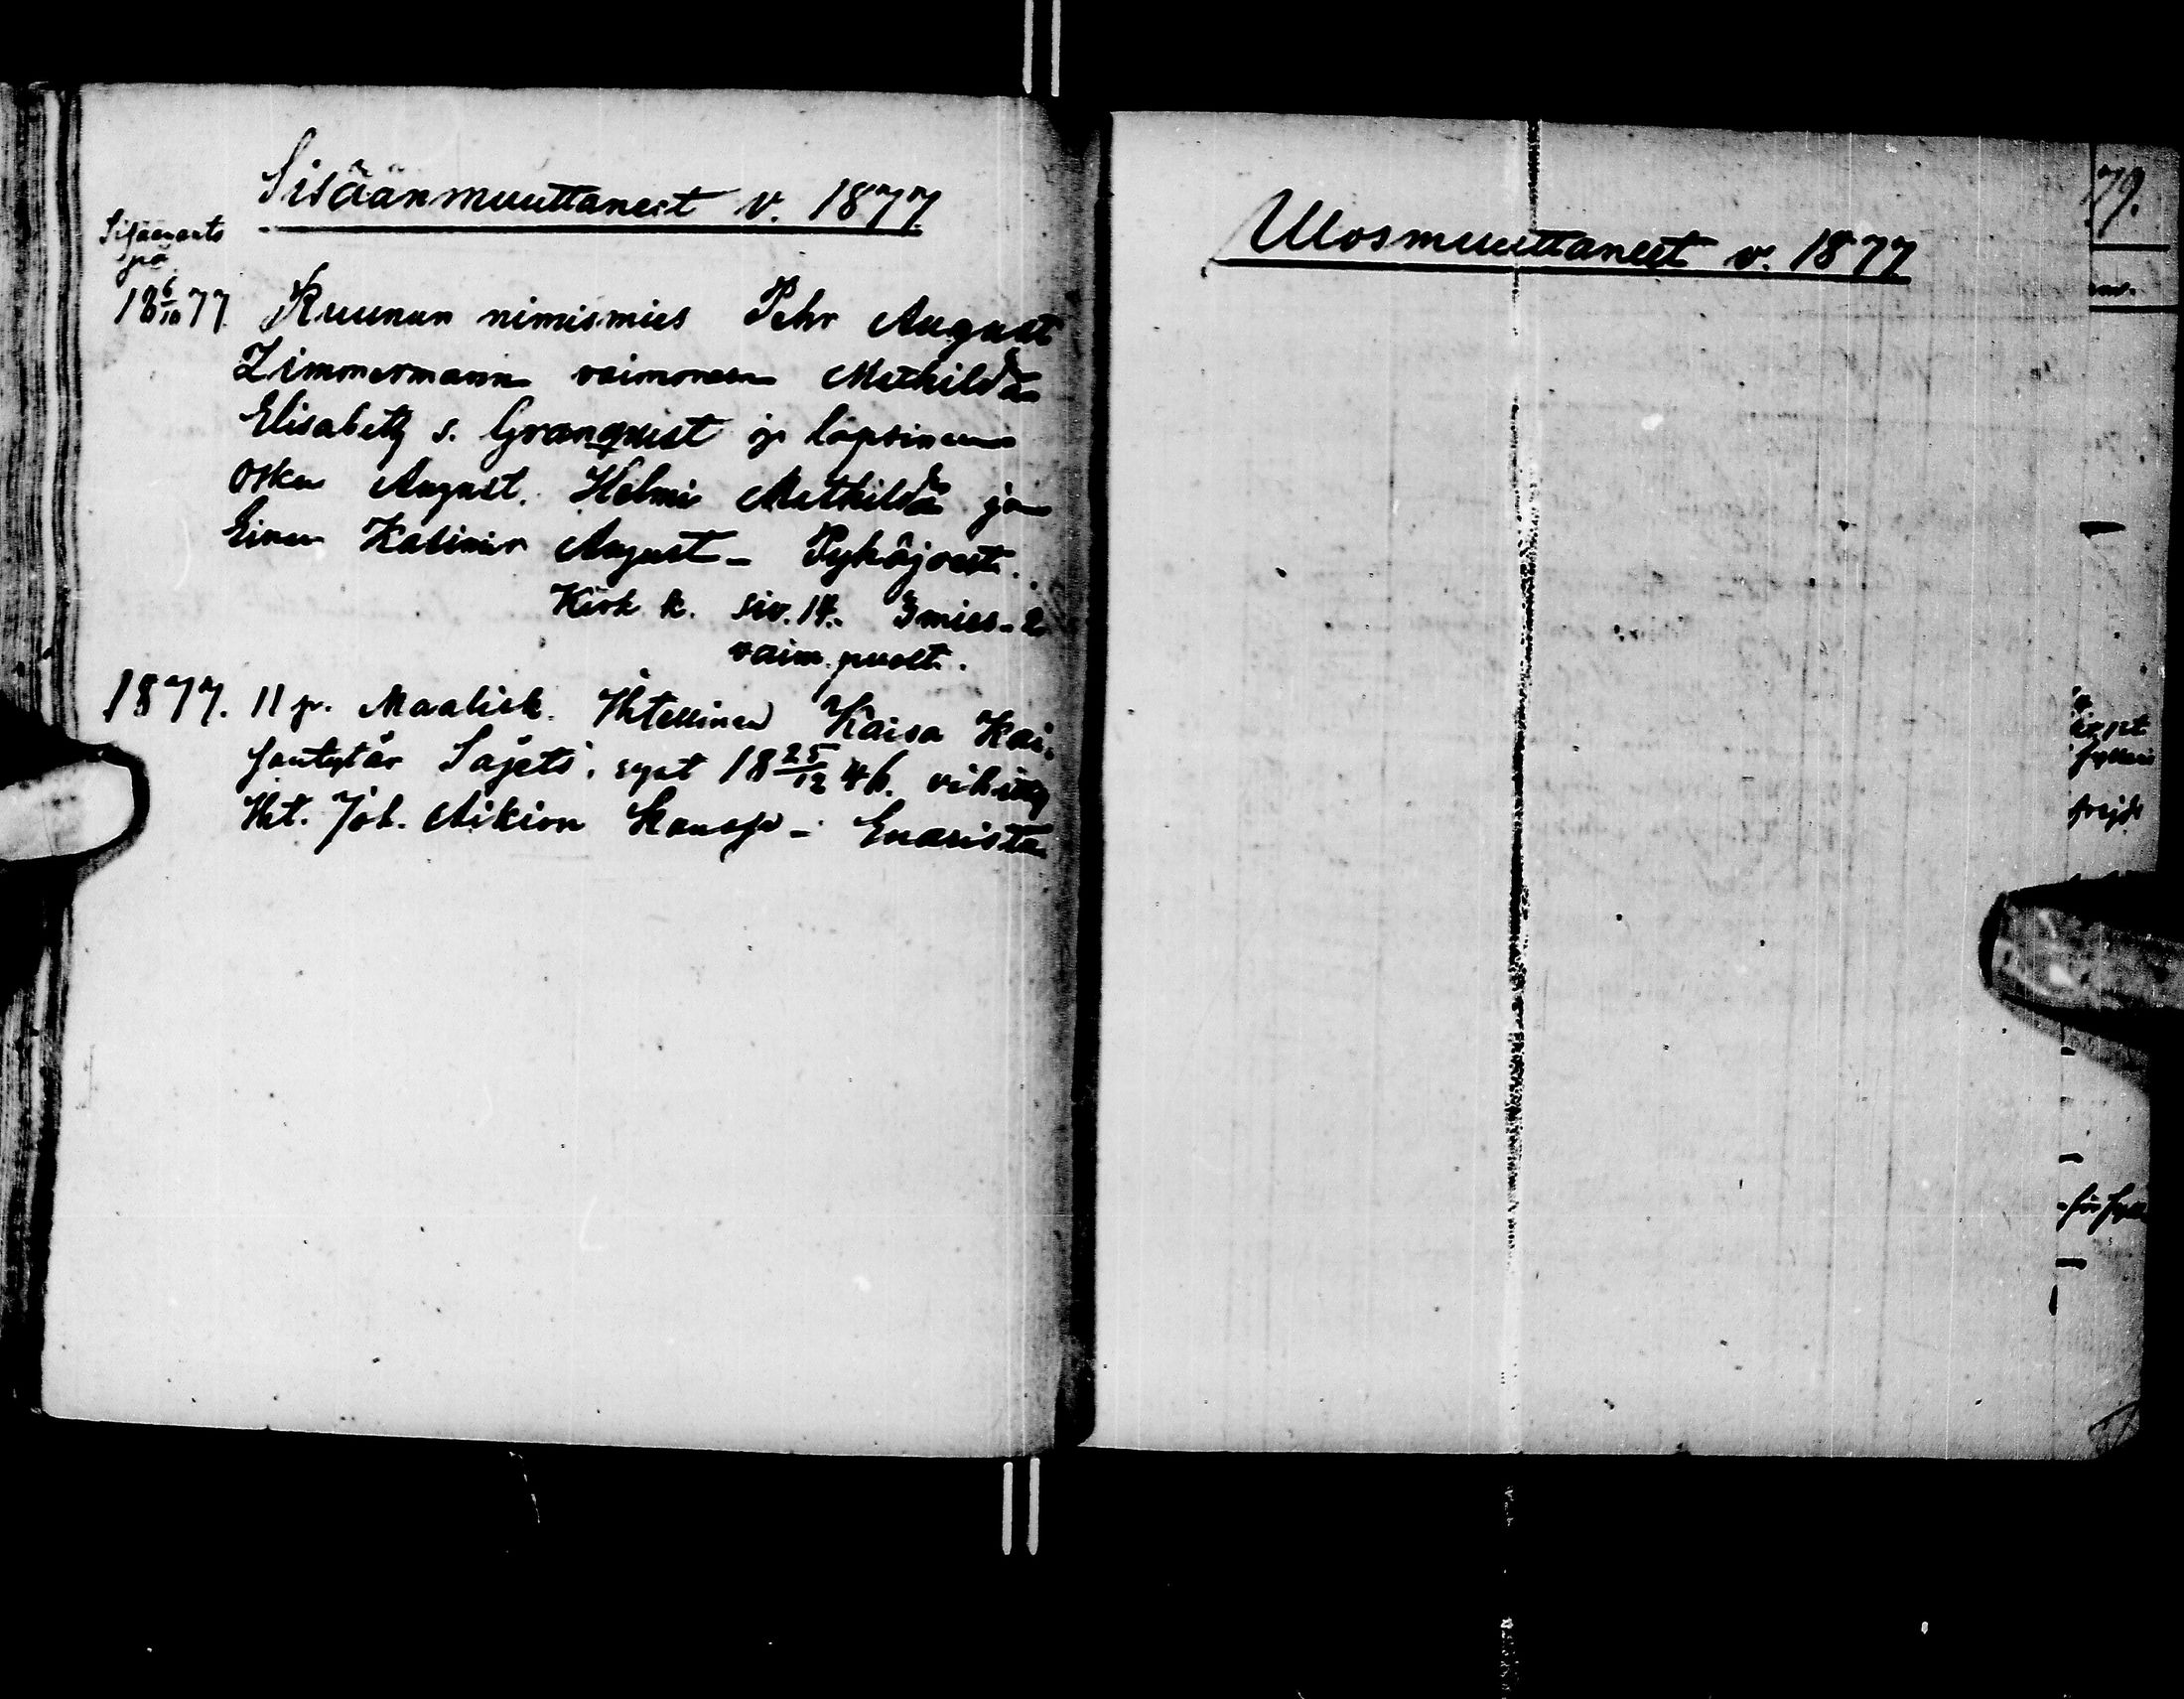 Sisäänmuuttaneet v. 1877.
18 6/10 77. Kruunun nimismies Pehr August
Zimmermann vaimoneen Mathilda
Elisabeth s. Granqvist ja lapsineen
Oskar August, Helmi Mathilda ja
Einar Kasimir August – Pyhäjoelt.
Kirk k. siv. 14. 3 mies- 2
vaim. puolt.
1877. 11 p. Maalisk. Itsellinen Kaisa Kai-
Sajets, synt 18 25/12 46. vihitty
Joh. Aikion kanssa – Enarista
Ulosmuuttaneet v. 1877
79.